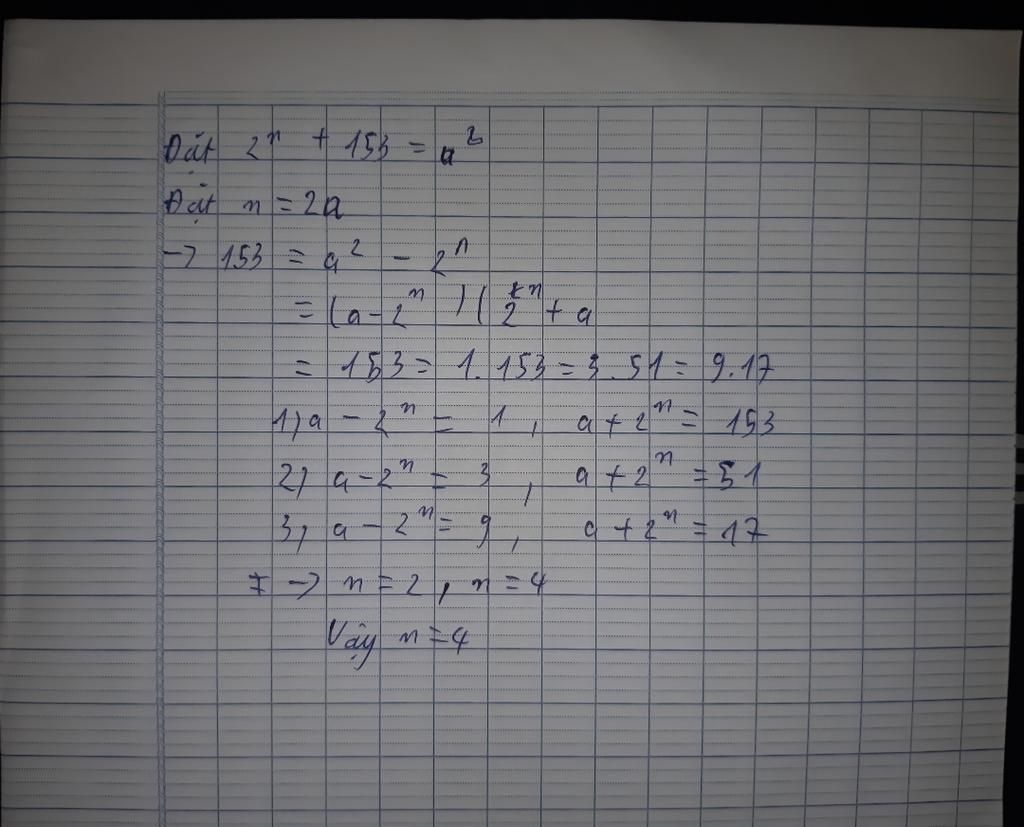 Đặt 2ⁿ + 153 = a²
Đặt n = 2a
→ 153 = a² - 2ⁿ
= (a - 2ⁿ ) ( 2ⁿ + a
= 153 = 1. 153 = 3. 51 = 9. 17
1) a - 2ⁿ = 1 , a + 2ⁿ = 153
2) a - 2ⁿ = 3 , a + 2ⁿ = 51
3) a - 2ⁿ = 9 , a + 2ⁿ = 17
→ n = 2 , n = 4
Vậy n = 4